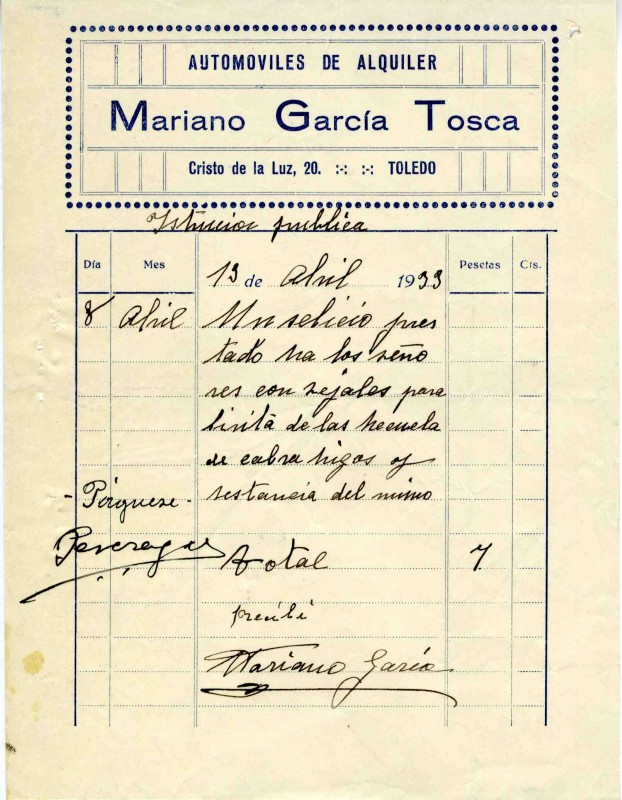 AUTOMOVILES DE ALQUILER
Mariano García Tosca
Cristo de la Luz, 20. :-: :-: TOLEDO
Istrucion publica
Día Mes Pesetas Cts.
13 de Abril 1933
8 Abril Un selicio pres
tado ha los seño
res con sejales para
visitá de las hecuela
de cabra higos y
- Páguese - restancia del mimo
total 7
recibí
Mariano García